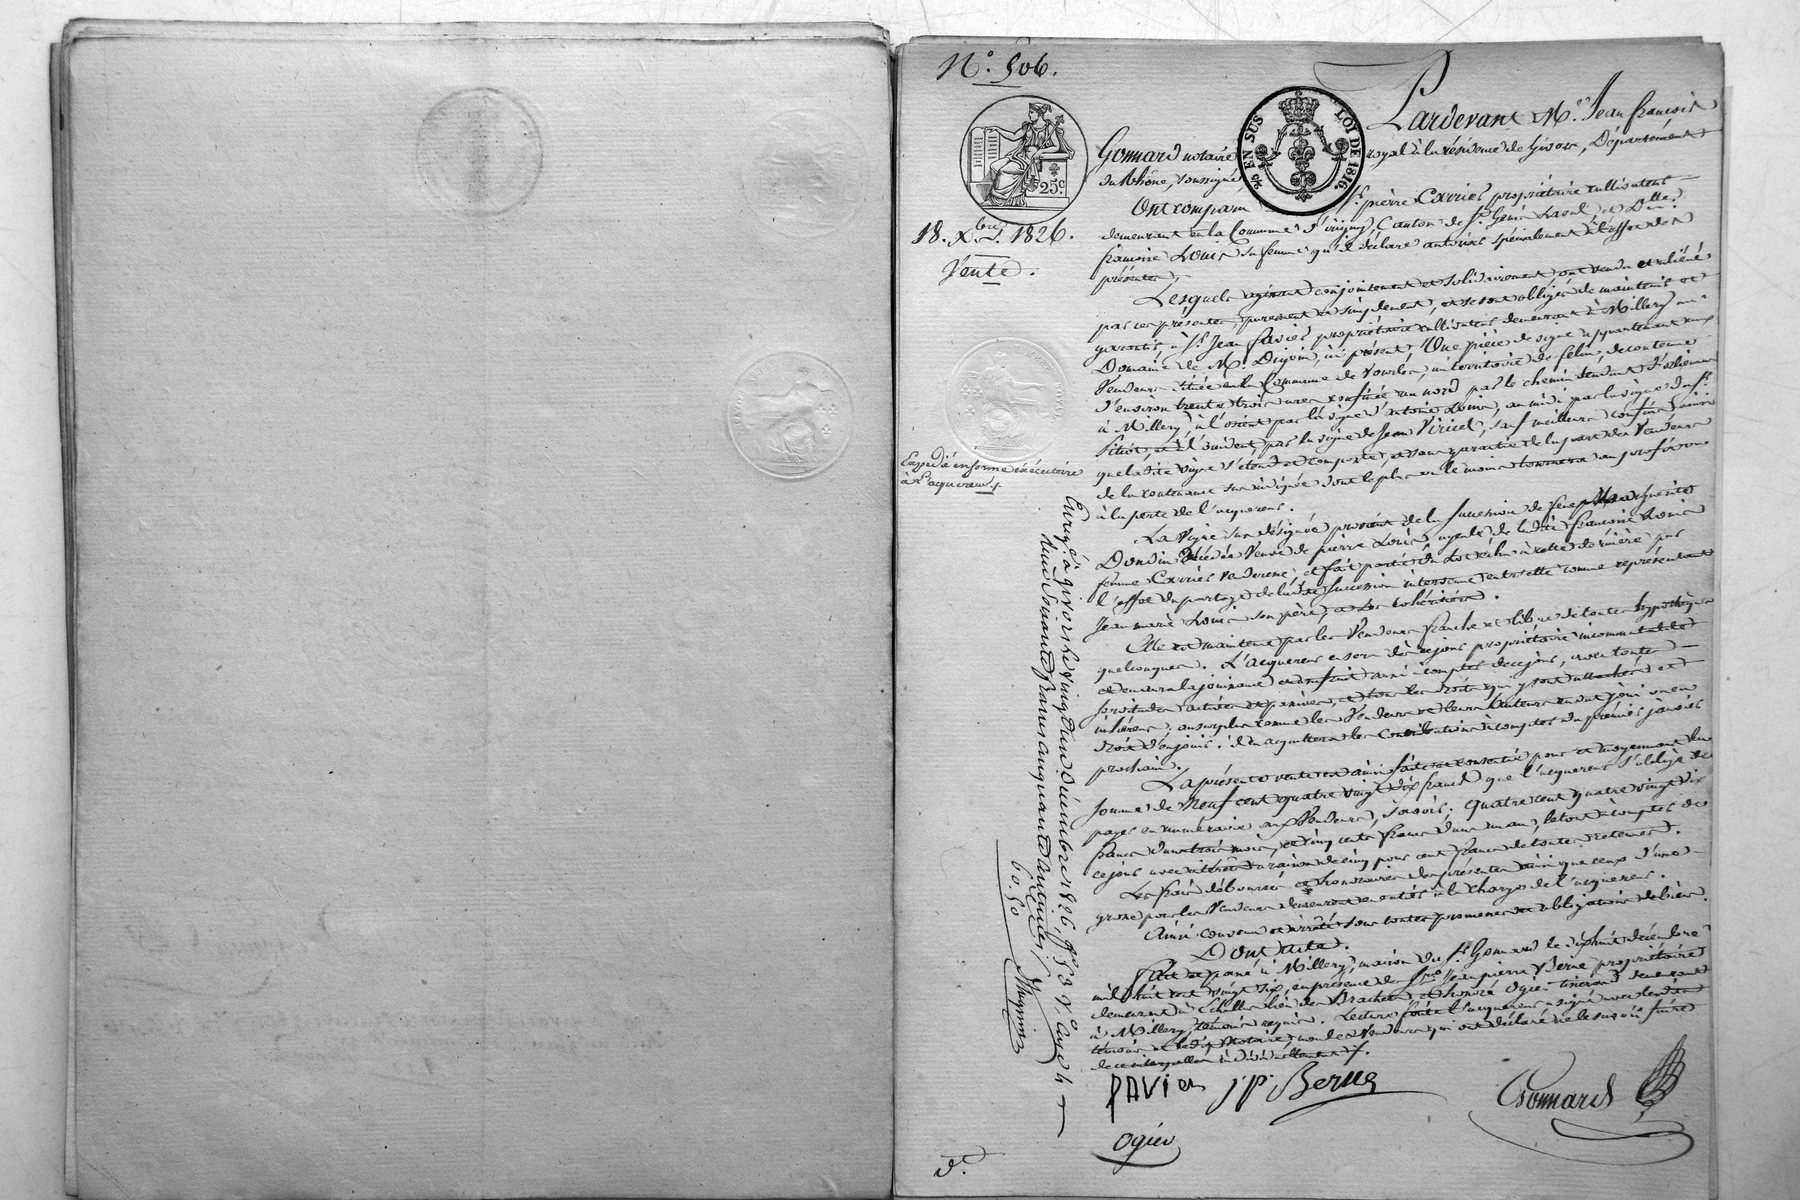 N.° 506.
25c
EN SUS LOI DE 1816.
18. Xbre. 1826.
Vente.
Expédié en forme exécutoire
à l'acquéreur
Pardevant Me. Jean François
Gonnard notaire royal à la résidence de Givors, Département
du Rhône, soussigné,
Ont comparu Sr. pierre Carrier propriétaire cultivateur
demeurant en la Commune d'irigny, Canton de St. Genis Laval, et Dlle.
françoise Louis sa femme qu'il déclare autoriser spécialement à l'effet des
présentes,
Lesquels agissant conjointement et solidairement ont vendu et aliéné
par ces présentes, purement et simplement, et se sont obligés de maintenir et
garantir à Sr. Jean favier propriétaire cultivateur demeurant à Millery au
Domaine de M. Digoin, ici présent, Une pièce de vigne appartenant aux
Vendeurs située en la Commune de Vourles, au territoire de felin, de contenue
d'environ trente trois ares confinée au nord par le chemin tendant d'
à Millery, à l'orient par la vigne d'antoine Louis, au midi par la vigne du Sr.
et à l'occident par la vigne de Jean Viricel, sauf meilleurs confins, ainsi
que la dite vigne s'étend et comporte, et sans garantie de la part des Vendeurs
de la contenance sus indiquée dont le plus ou le moins tournera au profit ou
à la perte de l'acquéreur.
La Vigne sus désignée provient de la succession de feue Marguerite
Dondin décédée Veuve de pierre Louis, ayeule de la dite françoise Louis
femme Carrier Venderesse, et fait partie du lot échu à cette dernière par
l'effet du partage de la dite succession intervenu entre elle comme représentant
Jean marie Louis son père, et ses cohéritiers.
Elle est maintenue par les Vendeurs franche et libre de toutes hypothèques
quelconques. L'acquéreur en sera dès ce jour propriétaire incommutable
et en aura la jouissance en usufruit aussi à compter de ce jour, avec toutes
servitudes actives et passives, et tous les droits qui y sont attachés et
inhérens, au surplus comme les Vendeurs et leurs auteurs en ont joui ou eu
droit d'en jouir. il en acquittera les contributions à compter du premier janvier
prochain.
La présente vente est ainsi faite et consentie pour et moyennant la
somme de Neuf cent quatre vingt dix francs que l'acquéreur s'oblige de
payer en numéraire aux Vendeurs, savoir: quatre cent quatre vingt dix
francs dans trois mois, et cinq cents francs dans un an, le tout à compter de
ce jour avec intérêt à raison de cinq pour cent francs de toutes retenues.
Les frais déboursés et honoraires des présentes ainsi que ceux d'une
grosse pour les Vendeurs demeurent en entier à la charge de l'acquéreur.
Ainsi convenu et arrêté sous toutes promesses et obligations de bien.
Dont acte.
Fait et passé à Millery, maison du Sr. Gonnard le dixhuit décembre
mil huit cent vingt six, en présence de Srs. Jean pierre Berne propriétaire
demeurant à Brachet, et honoré Ogier demeurant
à Millery, témoins requis. Lecture faite l'acquéreur a signé avec les
témoins et le dit Notaire, non les Vendeurs qui ont déclaré ne le savoir faire
de ce interpellés individuellement.
Enregé. à givors le vingt un décembre 1826, f° 53 V° Case 4
Reçu soixante francs cinquante centimes
60.50
FAVier J. P. Berne
Gonnard
Ogier